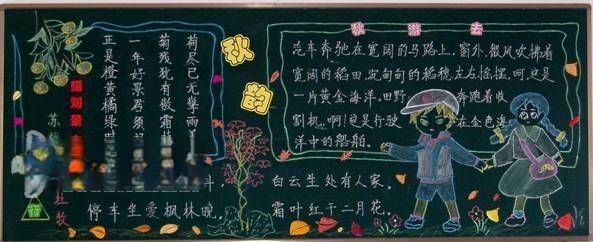 秋韵
荷尽已无擎雨
菊残犹有傲霜
一年好景君须
正是橙黄橘绿时
赠刘景
苏
秋游去
汽车奔驰在宽阔的马路上,窗外,微风吹拂着
宽阔的稻田,沉甸甸的稻穗左右摇摆,呵,这是
一片黄金海洋.田野 奔跑着收
割机,啊!这是行驶 在金色海
洋中的船舶.
杜牧
白云生处有人家。
停车坐爱枫林晚, 霜叶红于二月花。